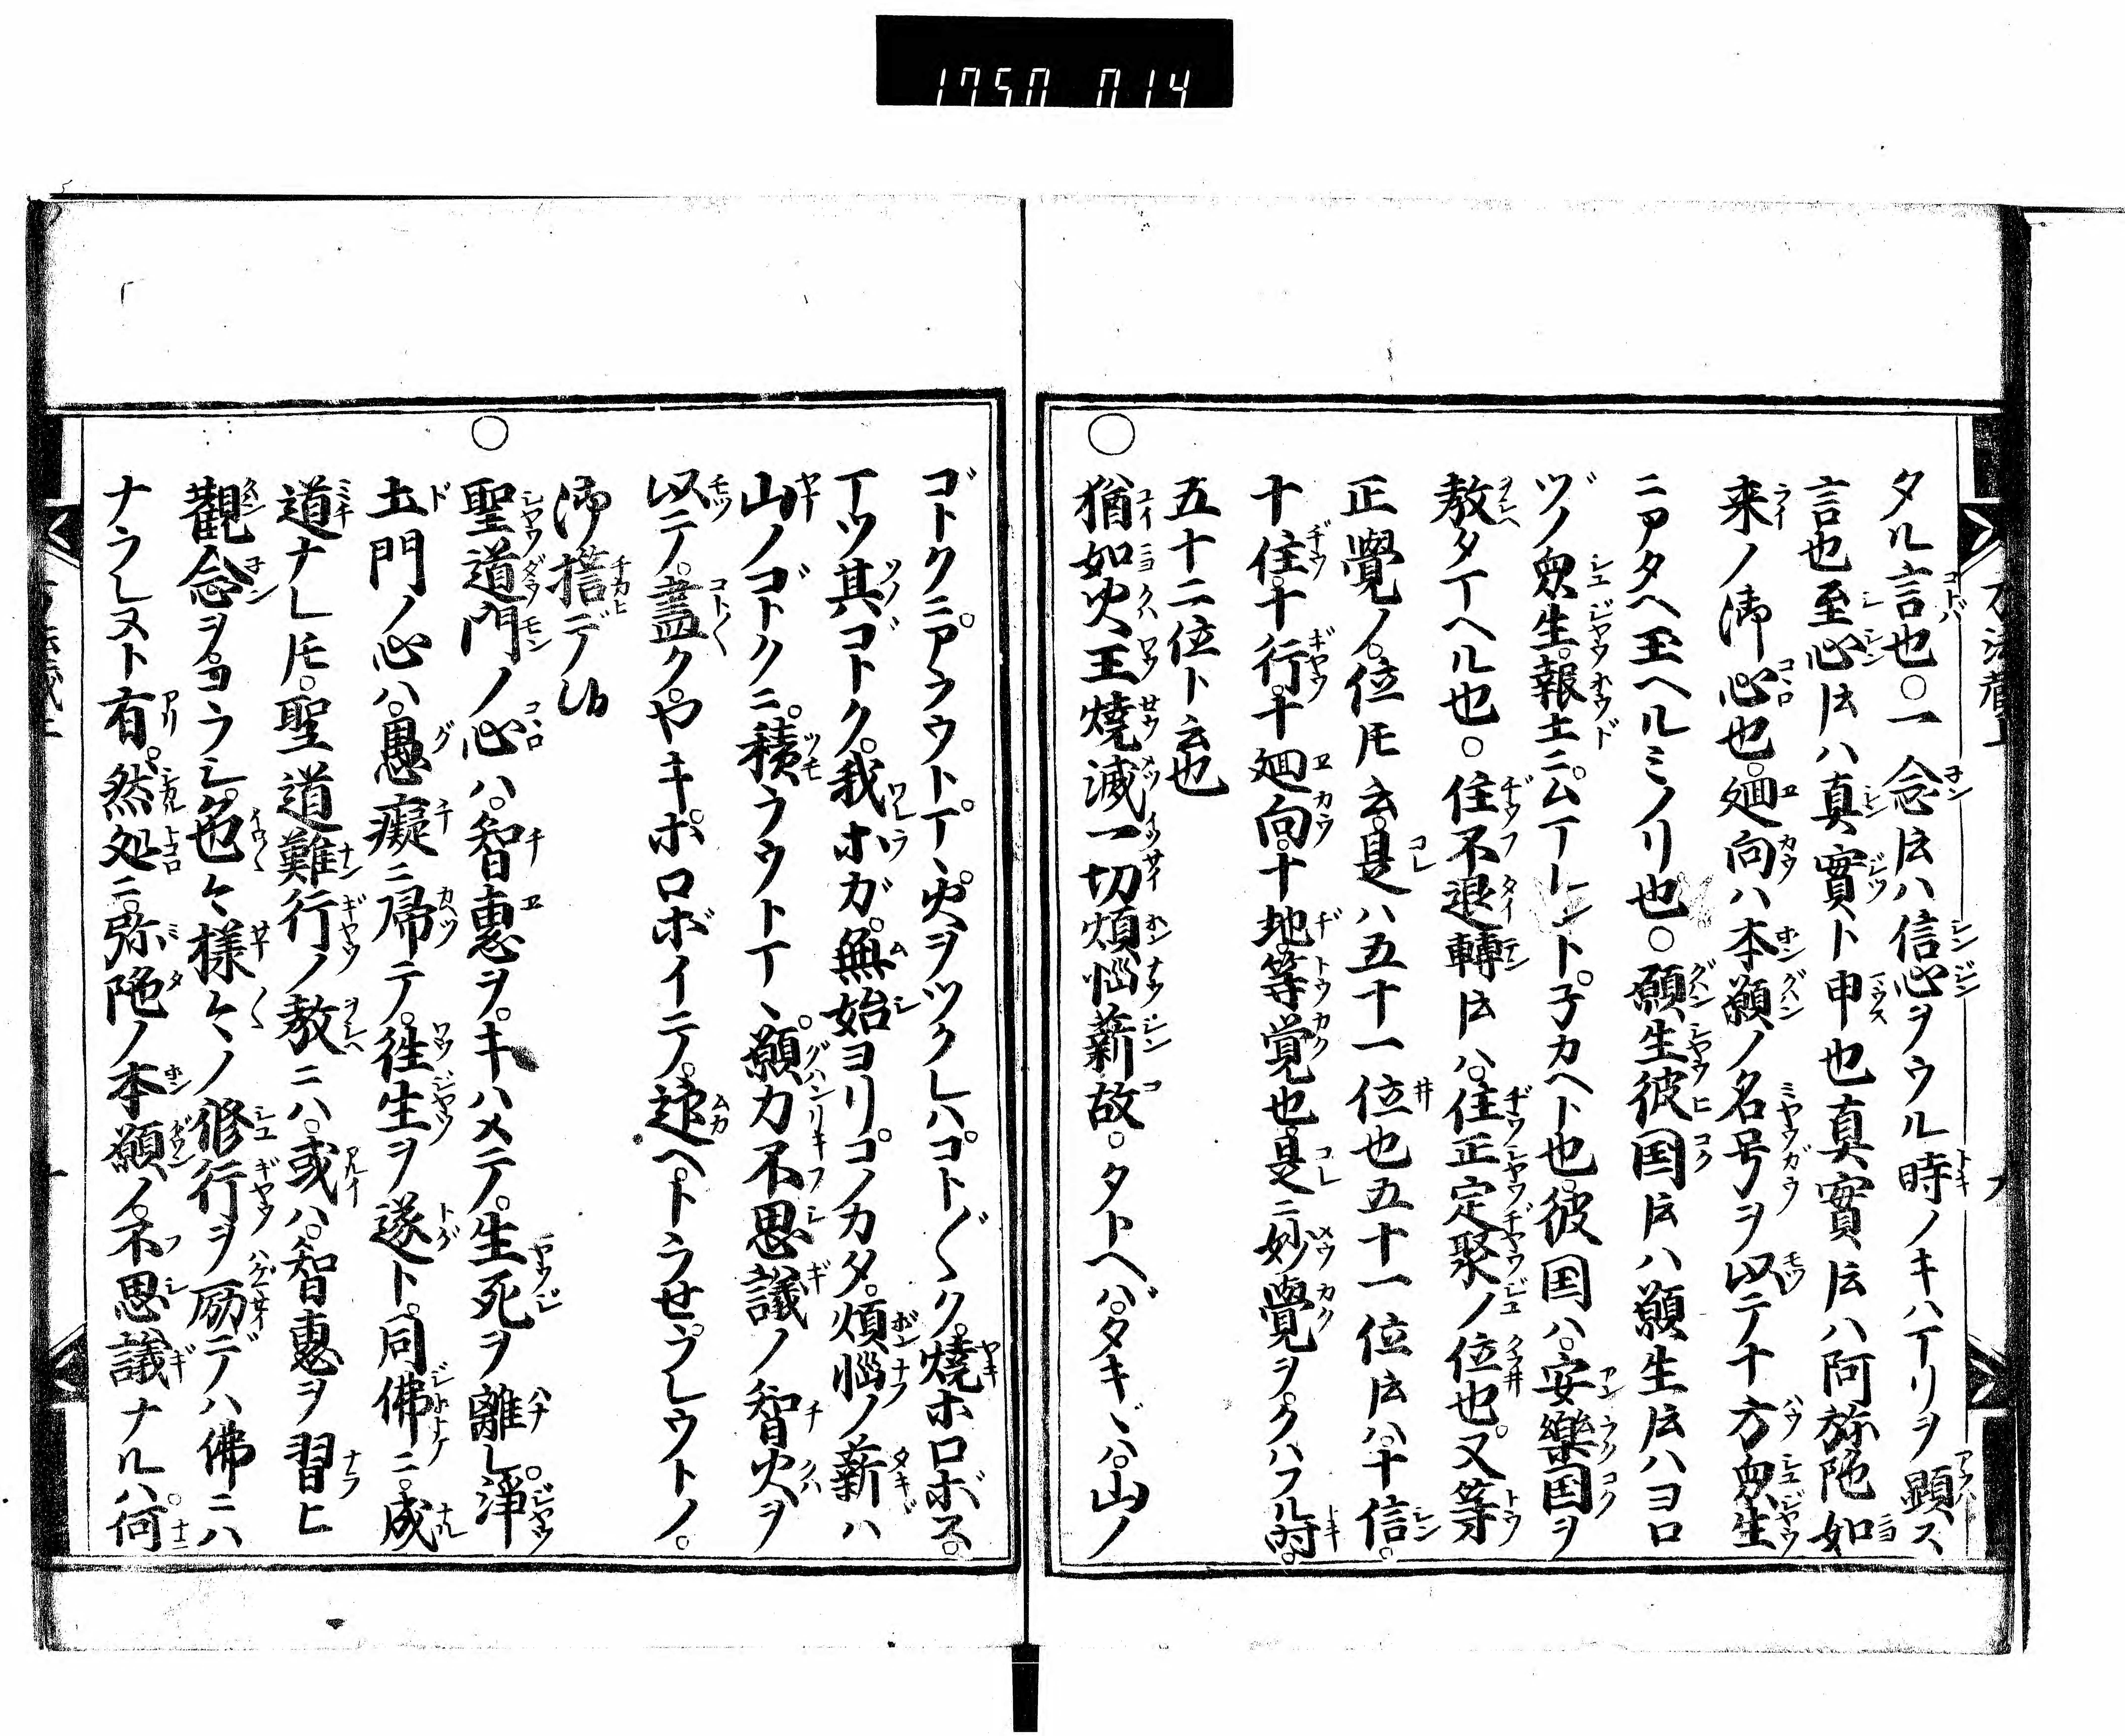 1750 014
タル言也○一念𪜈ハ信心ヲウル時ノキハアリヲ顕ス
言也至心𪜈ハ真實ト申也真實𪜈ハ阿弥陀如
来ノ御心也。廻向ハ本願ノ名号ヲ以テ十方衆生
ニアタヘ玉ヘルミノリ也○願生彼国𪜈ハ願生𪜈ハヨロ
ヅノ衆生。報土ニ。ムマレント。子カヘト也。彼国ハ。安樂国ヲ
教タマヘル也○住不退轉𪜈ハ。住正定聚ノ位也。又等
正覺ノ。位𪜈云。是ハ五十一位也五十一位𪜈ハ。十信。
十住。十行。十廻向。十地。等覚也。是ニ妙覺ヲ。クハフル時。
五十二位ト云也
○猶如火王燒滅一切煩悩薪故。タトヘバ。タキヾハ。山ノ
ゴトクニ。アラウトマヽ。火ヲツクレハ。コト〴〵ク。燒ホロボス。
マツ其ゴトク。我ホガ。無始ヨリ。コノカタ。煩悩ノ薪ハ
山ノゴトクニ。積ラウトマヽ。願力不思議ノ智火ヲ
以テ。盡ク。ヤキ。ホロボイテ。迎ヘ。トラせラレウトノ。
御誓デ候
○聖道門ノ心ハ。智惠ヲ。キハメテ。生死ヲ離レ。淨
土門ノ心ハ。愚癡ニ帰テ。徃生ヲ遂ト。同佛ニ。成
道ナレ𪜈。聖道難行ノ教ニハ。或ハ。智惠ヲ習ヒ
觀念ヲ。ヨラシ。色々様々ノ修行ヲ励デハ佛ニハ
ナラレヌト有。然処ニ。弥陀ノ本願ノ。不思議ナルハ。何